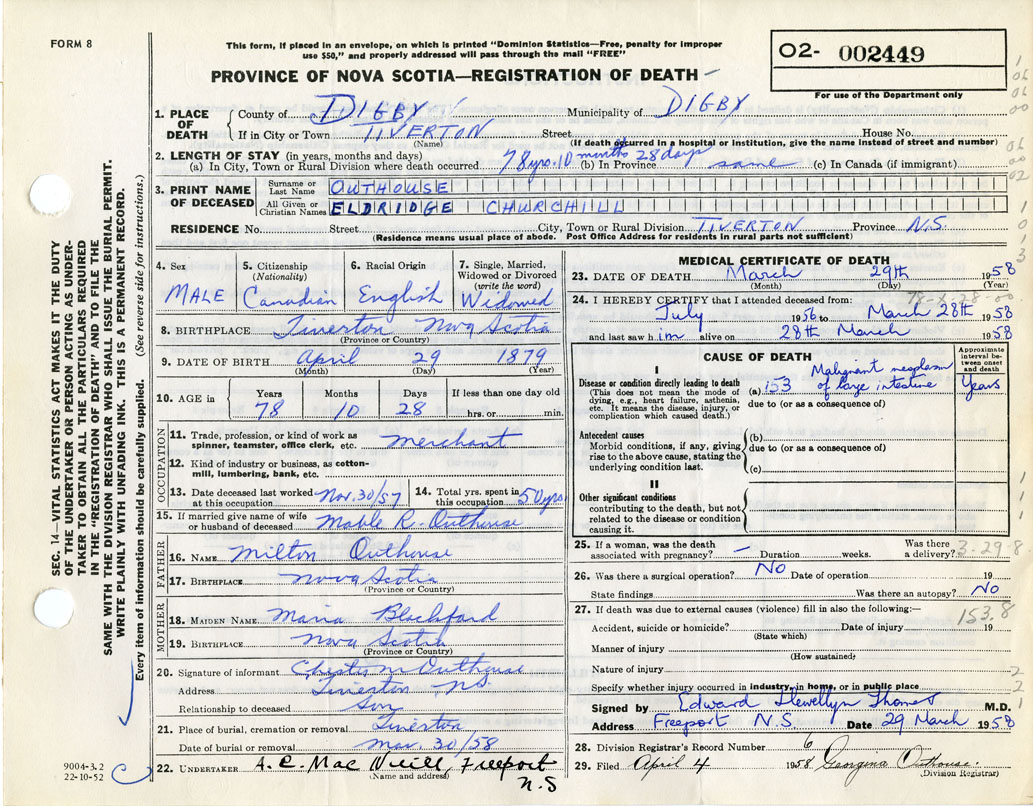 FORM 8
This form, if placed in an envelope, on which is printed "Dominion Statistics—Free, penalty for improper
use $50," and properly addressed will pass through the mail "FREE"
02- 002449
For use of the Department only
PROVINCE OF NOVA SCOTIA—REGISTRATION OF DEATH
1. PLACE OF DEATH
County of DIGBY Municipality of DIGBY
If in City or Town TIVERTON Street House No.
(Name) (If death occurred in a hospital or institution, give the name instead of street and number)
2. LENGTH OF STAY (in years, months and days)
(a) In City, Town or Rural Division where death occurred 78 yrs. 10 months 28 days (b) In Province same (c) In Canada (if immigrant)
3. PRINT NAME OF DECEASED
Surname or Last Name OUTHOUSE
All Given or Christian Names ELDRIDGE CHURCHILL
RESIDENCE No. Street City, Town or Rural Division TIVERTON Province N.S.
(Residence means usual place of abode. Post Office Address for residents in rural parts not sufficient)
SEC. 14—VITAL STATISTICS ACT MAKES IT THE DUTY
OF THE UNDERTAKER OR PERSON ACTING AS UNDER-
TAKER TO OBTAIN ALL THE PARTICULARS REQUIRED
IN THE "REGISTRATION OF DEATH" AND TO FILE THE
SAME WITH THE DIVISION REGISTRAR WHO SHALL ISSUE THE BURIAL PERMIT.
WRITE PLAINLY WITH UNFADING INK. THIS IS A PERMANENT RECORD.
Every item of information should be carefully supplied. (See reverse side for instructions.)
4. Sex 5. Citizenship (Nationality) 6. Racial Origin 7. Single, Married, Widowed or Divorced (write the word)
MALE Canadian English Widowed
8. BIRTHPLACE Tiverton Nova Scotia
(Province or Country)
9. DATE OF BIRTH April 29 1879
(Month) (Day) (Year)
10. AGE in Years Months Days If less than one day old
78 10 28 hrs. or min.
OCCUPATION
11. Trade, profession, or kind of work as spinner, teamster, office clerk, etc. merchant
12. Kind of industry or business, as cotton-mill, lumbering, bank, etc.
13. Date deceased last worked at this occupation Nov. 30/57 14. Total yrs. spent in this occupation 50 yrs
15. If married give name of wife or husband of deceased Mable R. Outhouse
FATHER
16. NAME Milton Outhouse
17. BIRTHPLACE Nova Scotia
(Province or Country)
MOTHER
18. MAIDEN NAME Maria Blackford
19. BIRTHPLACE Nova Scotia
(Province or Country)
20. Signature of informant Outhouse
Address Tiverton NS
Relationship to deceased Son
21. Place of burial, cremation or removal Tiverton
Date of burial or removal Mar. 30/58
22. UNDERTAKER A. C. Mac Neill, Freeport
(Name and address) N.S
9004-3.2
22-10-52
MEDICAL CERTIFICATE OF DEATH
23. DATE OF DEATH March 29th 1958
(Month) (Day) (Year)
24. I HEREBY CERTIFY that I attended deceased from:
July 1956 to March 28th 1958
and last saw him alive on 28th March 1958
CAUSE OF DEATH
Approximate interval between onset and death
I
Disease or condition directly leading to death
(This does not mean the mode of dying, e.g., heart failure, asthenia, etc. It means the disease, injury, or complication which caused death.)
(a) 153 Malignant neoplasm of large intestine Years
due to (or as a consequence of)
Antecedent causes
Morbid conditions, if any, giving rise to the above cause, stating the underlying condition last.
(b)
due to (or as a consequence of)
(c)
II
Other significant conditions
contributing to the death, but not related to the disease or condition causing it.
25. If a woman, was the death associated with pregnancy? — Duration weeks. Was there a delivery? 3-29-8
26. Was there a surgical operation? NO Date of operation 19
State findings Was there an autopsy? NO
27. If death was due to external causes (violence) fill in also the following:— 153.8
Accident, suicide or homicide? Date of injury 19
(State which)
Manner of injury
(How sustained)
Nature of injury
Specify whether injury occurred in industry, in home, or in public place
Signed by Edward Llewellyn Thomas M.D.
Address Freeport N.S Date 29 March 1958
28. Division Registrar's Record Number 6
29. Filed April 4 1958 Georgina Outhouse
(Division Registrar)